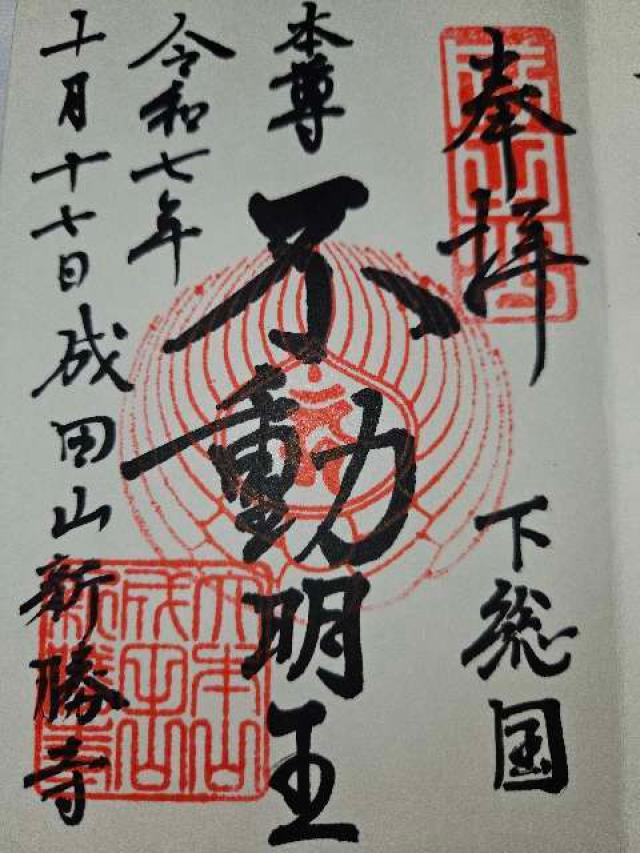 奉拝
下総国
本尊
不動明王
令和七年
十一月十七日成田山新勝寺
大本山
成田山
新勝寺